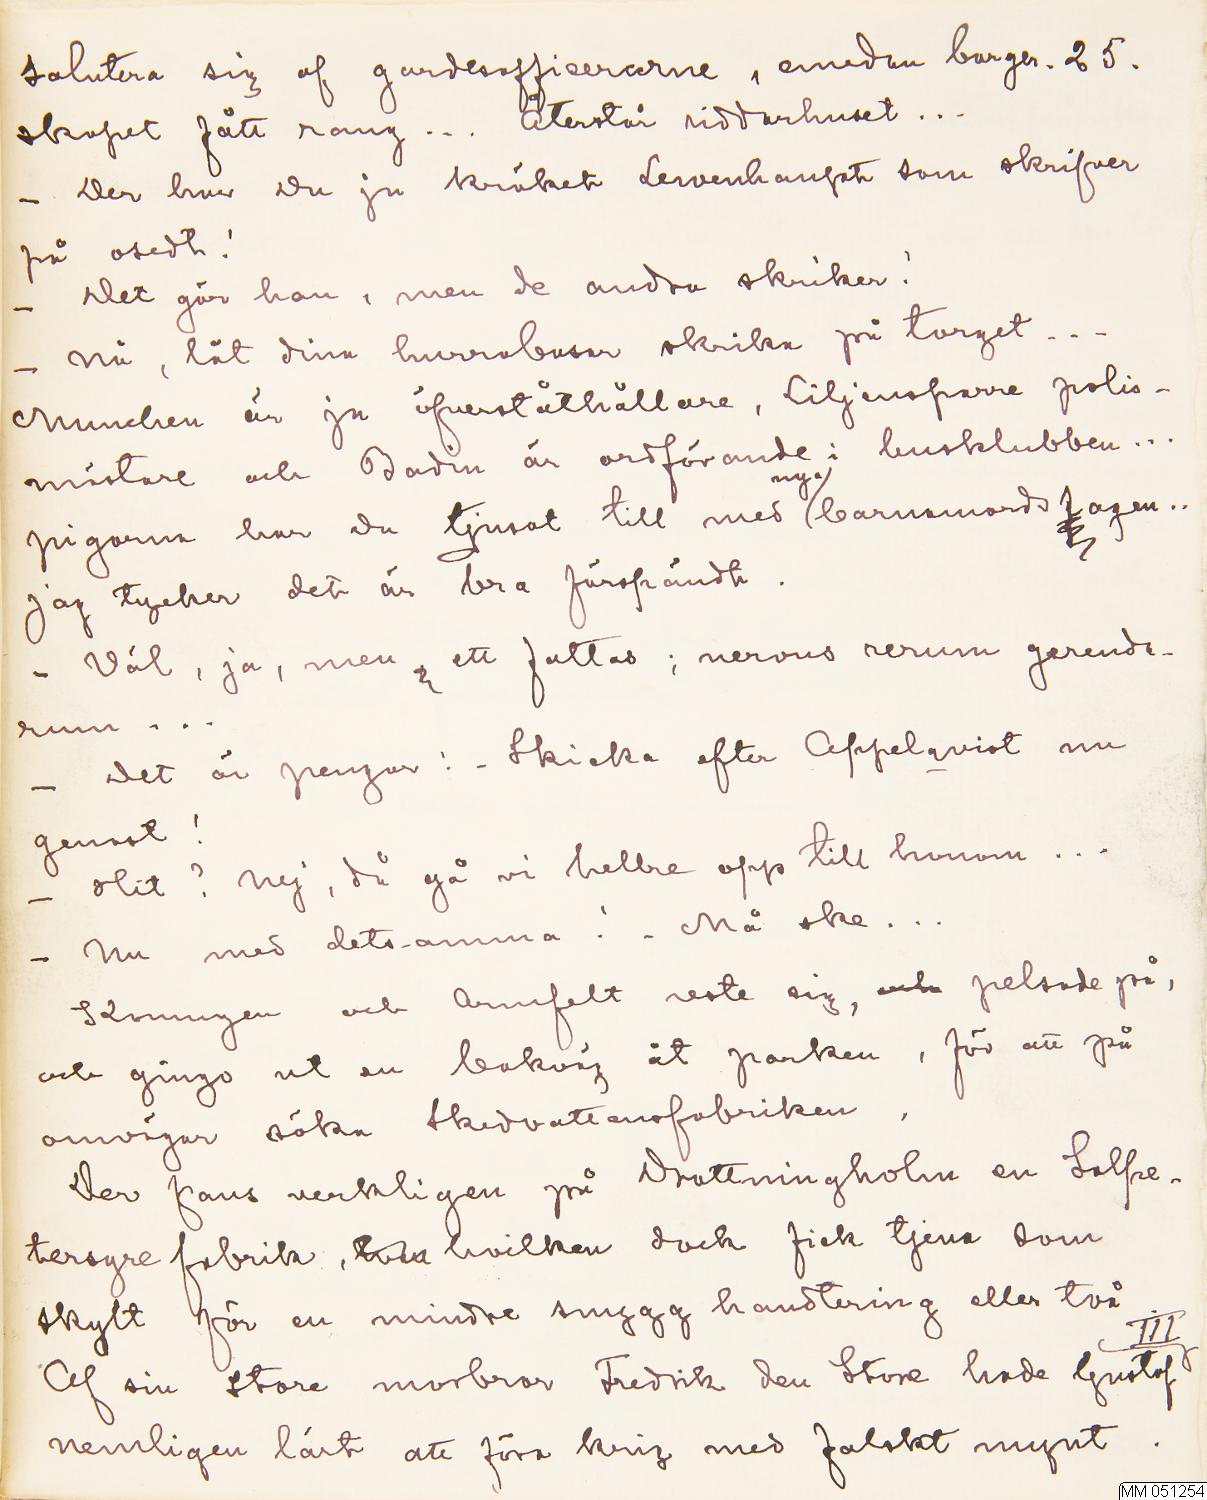 salutera sig af gardesofficerarne, emedan borger- 25.
skapet fått rang... Återstår riddarhuset...
- Der har Du ju kräket Lewenhaupt som skrifver
på osedt!
- Det gör han, men de andra skriker!
- Nå, låt dina hurrabasar skrika på torget - - -
Munchen är ju öfverståthållare, Liljensparre polis-
mästare och Badin är ordförande i busklubben...
nya
pigorna har du tjusat till med barnamordslagen..
jag tycker det är bra förspändt.
- Väl, ja, men ett fattas; nervus rerum gerenda-
rum...
- Det är pengar! - Skicka efter Appelqvist nu
genast!
- Hit? Nej, då gå vi hellre opp till honom...
- Nu med detsamma! - Må ske...
Konungen och Armfelt reste sig, och pelsade på,
och gingo ut en bakväg åt parken, för att på
omvägar söka Skedvattensfabriken.
Der fans verkligen på Drottningholm en Salpe-
tersyrefabrik, hvilken dock fick tjena som
skylt för en mindre smygghandtering eller två.
III
Af sin store morbror Fredrik den Store hade Gustaf
nemligen lärt att föra krig med falskt mynt.
MM 051254